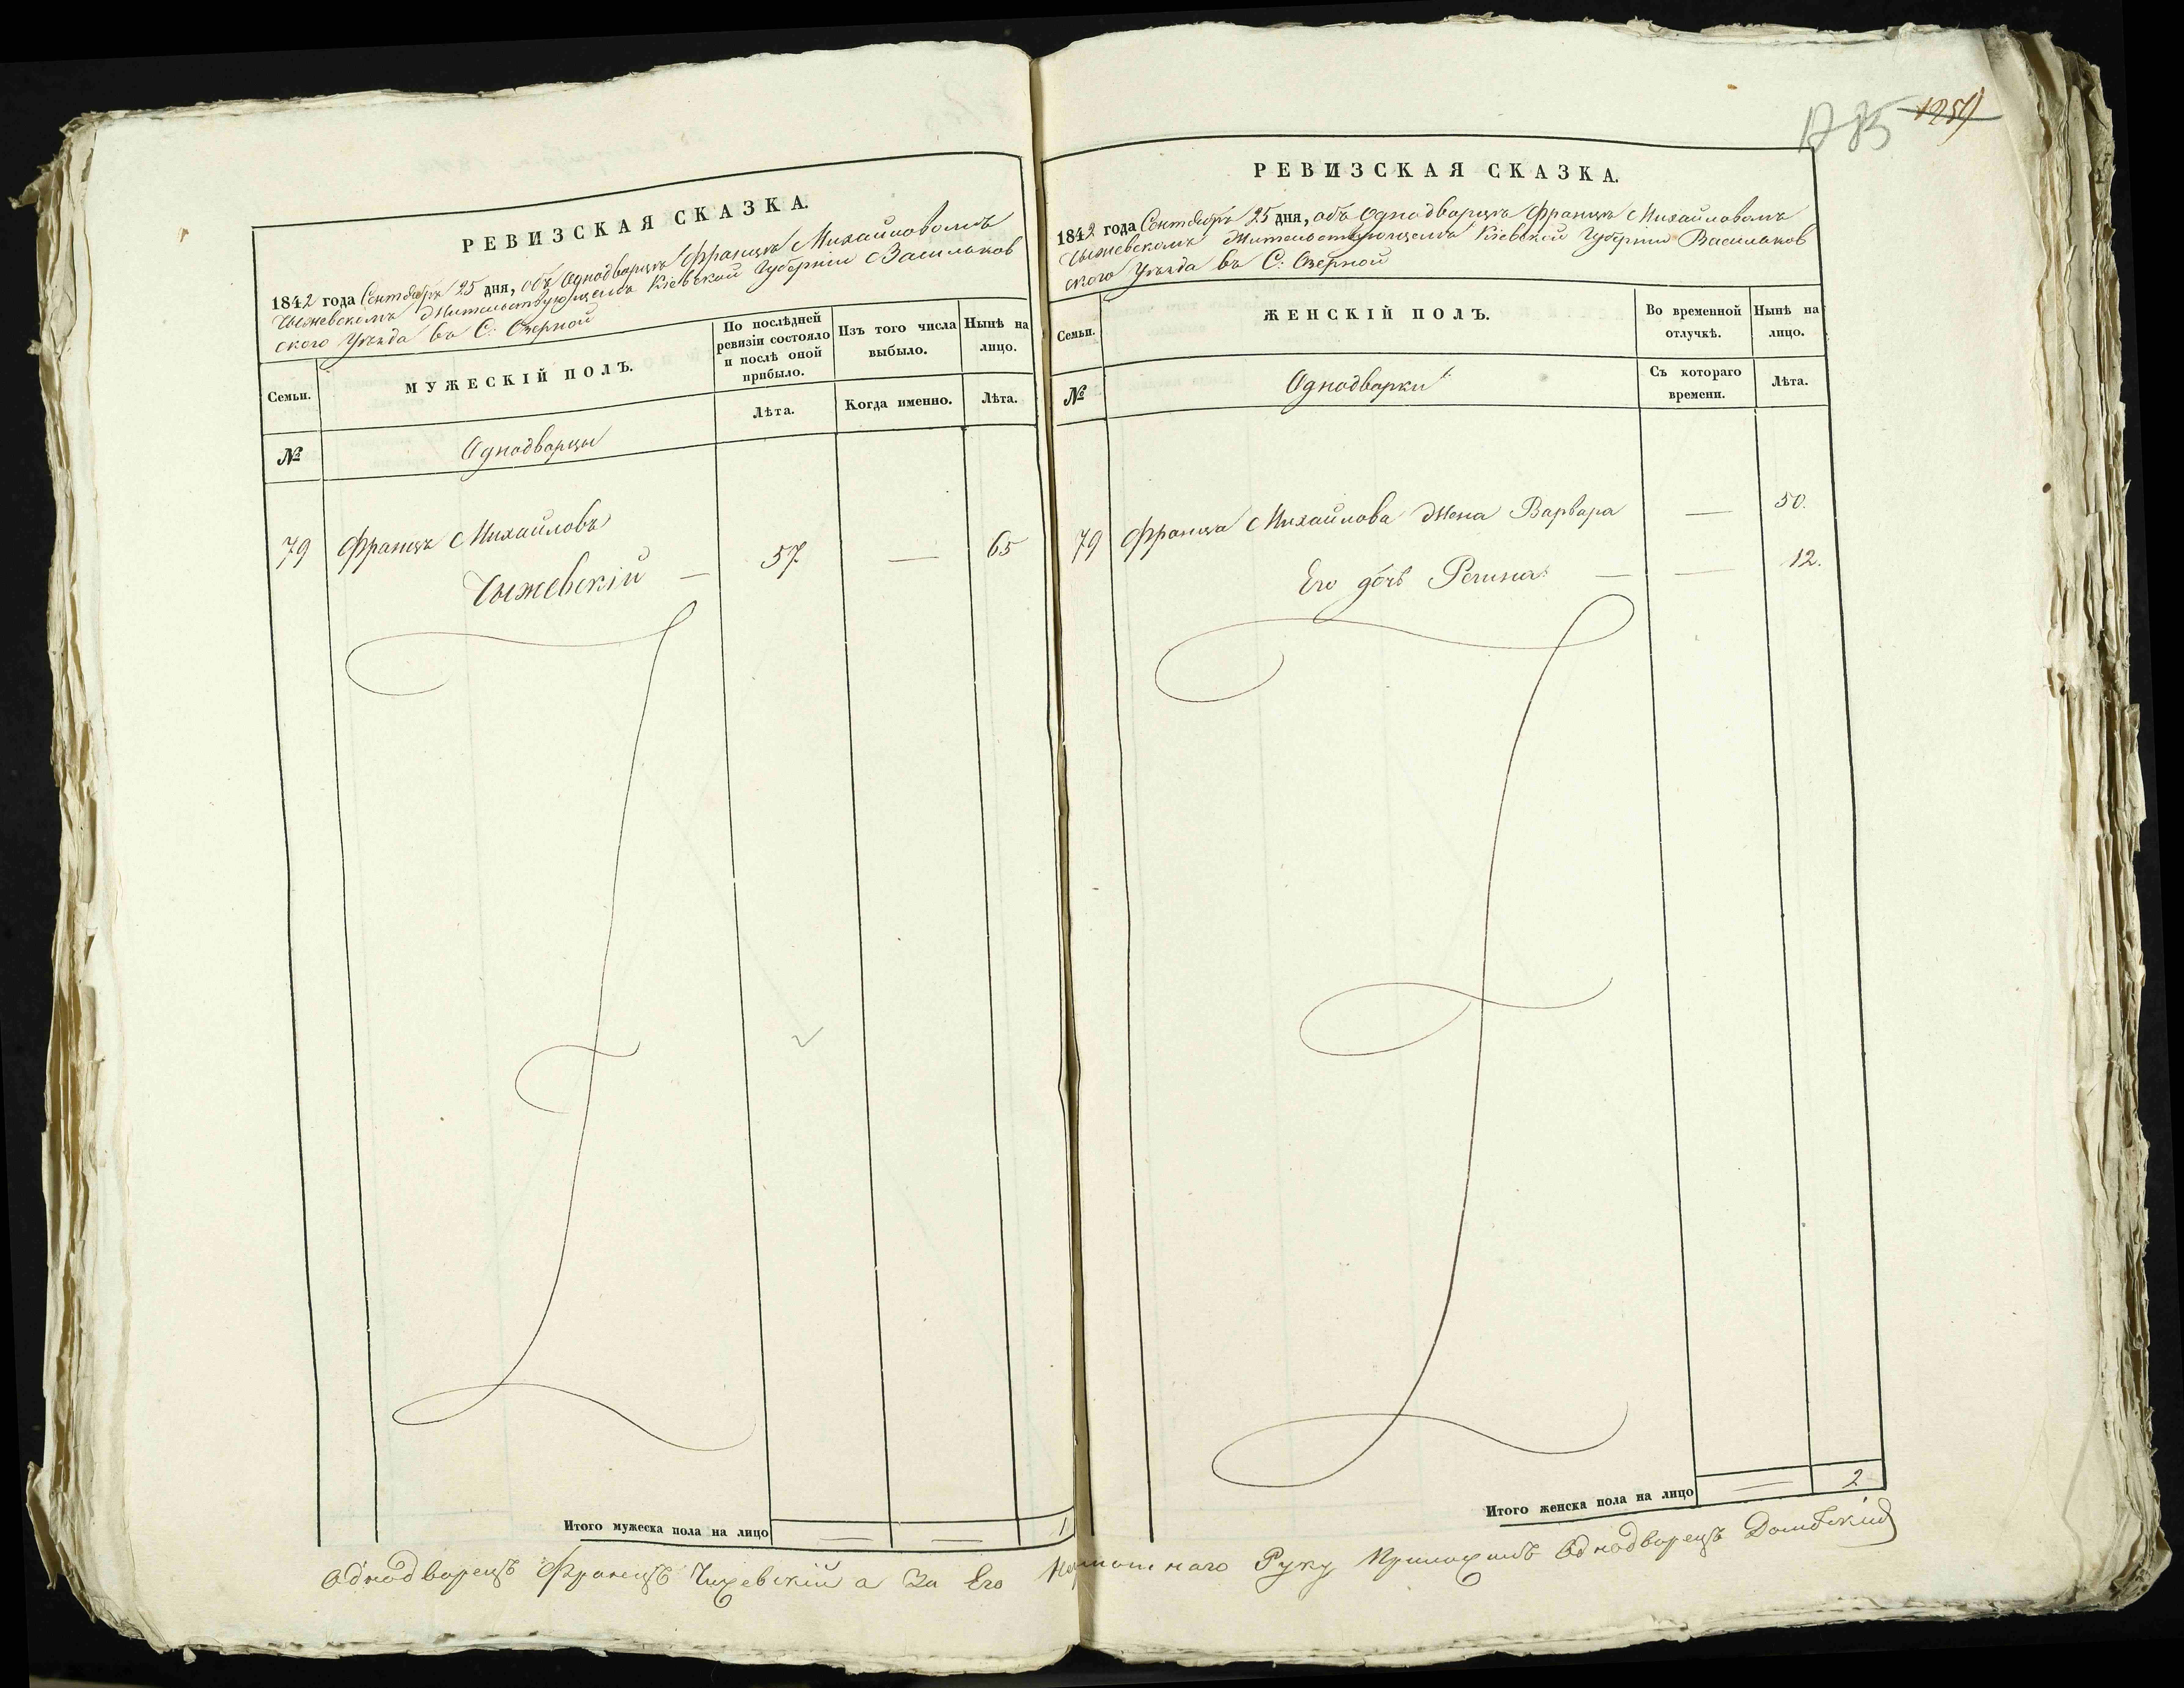 РЕВИЗСКАЯ СКАЗКА.
1842 года Сентября 25 дня, объ Однодворцѣ Францѣ Михайловомъ
Чыжевскомъ жительствующемъ Кіевской Губерніи Васильков
ского Уѣзда въ С: Озерной
Семьи.
МУЖЕСКІЙ ПОЛЪ.
По послѣдней
ревизіи состояло
и послѣ оной
прибыло.
Изъ того числа
выбыло.
Нынѣ на
лицо.
Лѣта.
Когда именно.
Лѣта.
№
Однодворцы
79
Францъ Михайловъ
Чыжевскій —
57
—
65
Итого мужеска пола на лицо
1
РЕВИЗСКАЯ СКАЗКА.
1842 года Сентября 25 дня, объ Однодворцѣ Францѣ Михайловомъ
Чыжевскомъ жительствующемъ Кіевской Губерніи Васильков
ского Уѣзда въ С: Озерной
Семьи.
ЖЕНСКІЙ ПОЛЪ.
Во временной
отлучкѣ.
Нынѣ на
лицо.
№
Однодворки
Съ котораго
времени.
Лѣта.
79
Франца Михайлова жена Варвара
—
50.
Его дочь Регина —
—
12.
Итого женска пола на лицо
2
Однодворецъ Францъ Чижевскій а За Его Неграмотнаго Руку Приложилъ Однодворецъ Домбскій